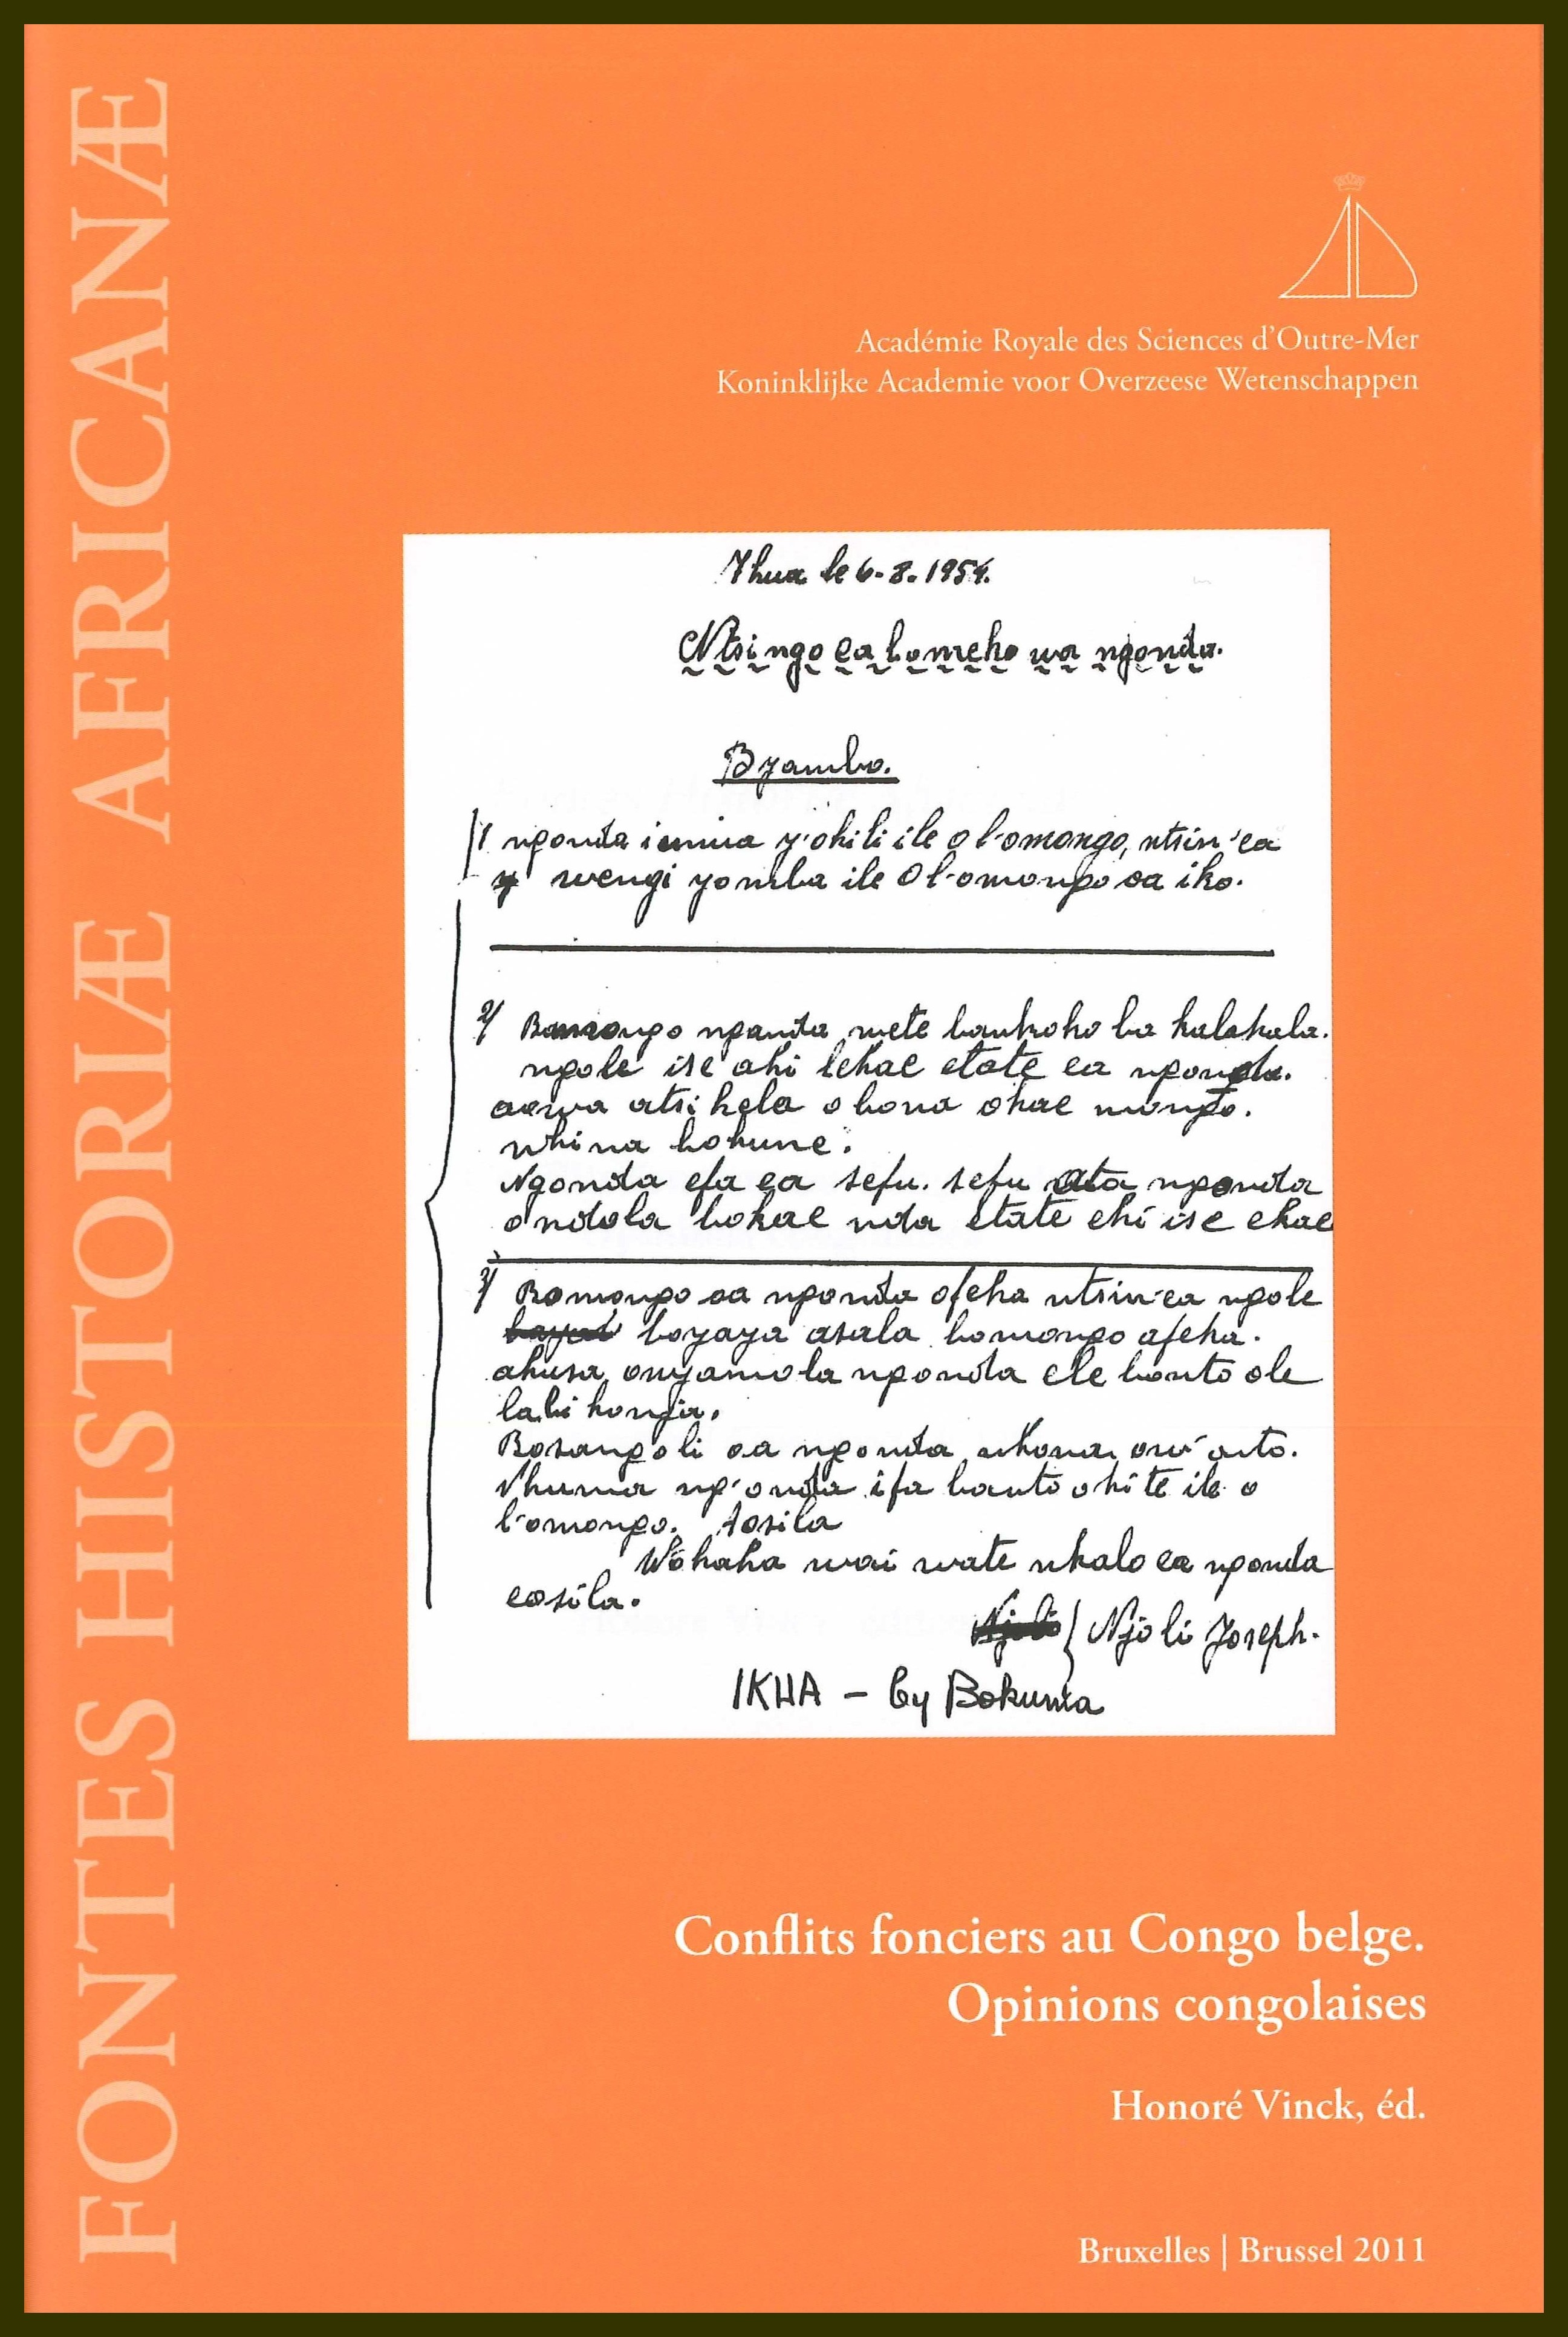 FONTES HISTORIÆ AFRICANÆ
Académie Royale des Sciences d'Outre-Mer
Koninklijke Academie voor Overzeese Wetenschappen
le 6-8.1954.
Ntsingo ea bomeko wa ngonda.
Byambo.
1 ngonda y'okili ile o l'omongo, ntsin'ea
wengi yomba ile o l'omongo oa iko.
2/ nganda wete bankoko ba kalakala.
ngole ise aki lekae etate ea ngonda.
aowa atsikela obona okae mongo.
nkina bokune.
Ngonda efa ea sefu. sefu ata ngonda
ondola bokae nda etate eki ise ekae
3/ Bomongo oa ngonda ofeka ntsin'ea ngole
boyaya asala bomongo afeka.
akusa onyamola ngonda ele bonto ole
la bikonja.
Bosangoli oa ngonda nkona aoto.
Nkuma ng'onda ifa banto okite ile o
l'omongo. Aosila
Wokaka wai wate nkalo ea ngonda
eosila.
Njoli Joseph.
IKUA – by Bokuma
Conflits fonciers au Congo belge.
Opinions congolaises
Honoré Vinck, éd.
Bruxelles | Brussel 2011